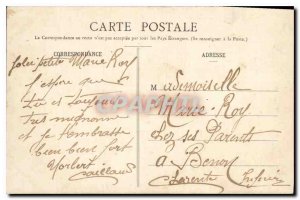 CARTE POSTALE
La Correspondance au recto n'est pas acceptée par tous les Pays Étrangers. (Se renseigner à la Poste.)
CORRESPONDANCE
Jolie petite Marie Roy
J'espère que
tu es toujours
très mignonne
et je t'embrasse
bien bien fort
Norbert
Caillaud
ADRESSE
Mademoiselle
Marie Roy
chez ses Parents
à Benon
Charente Inférieure